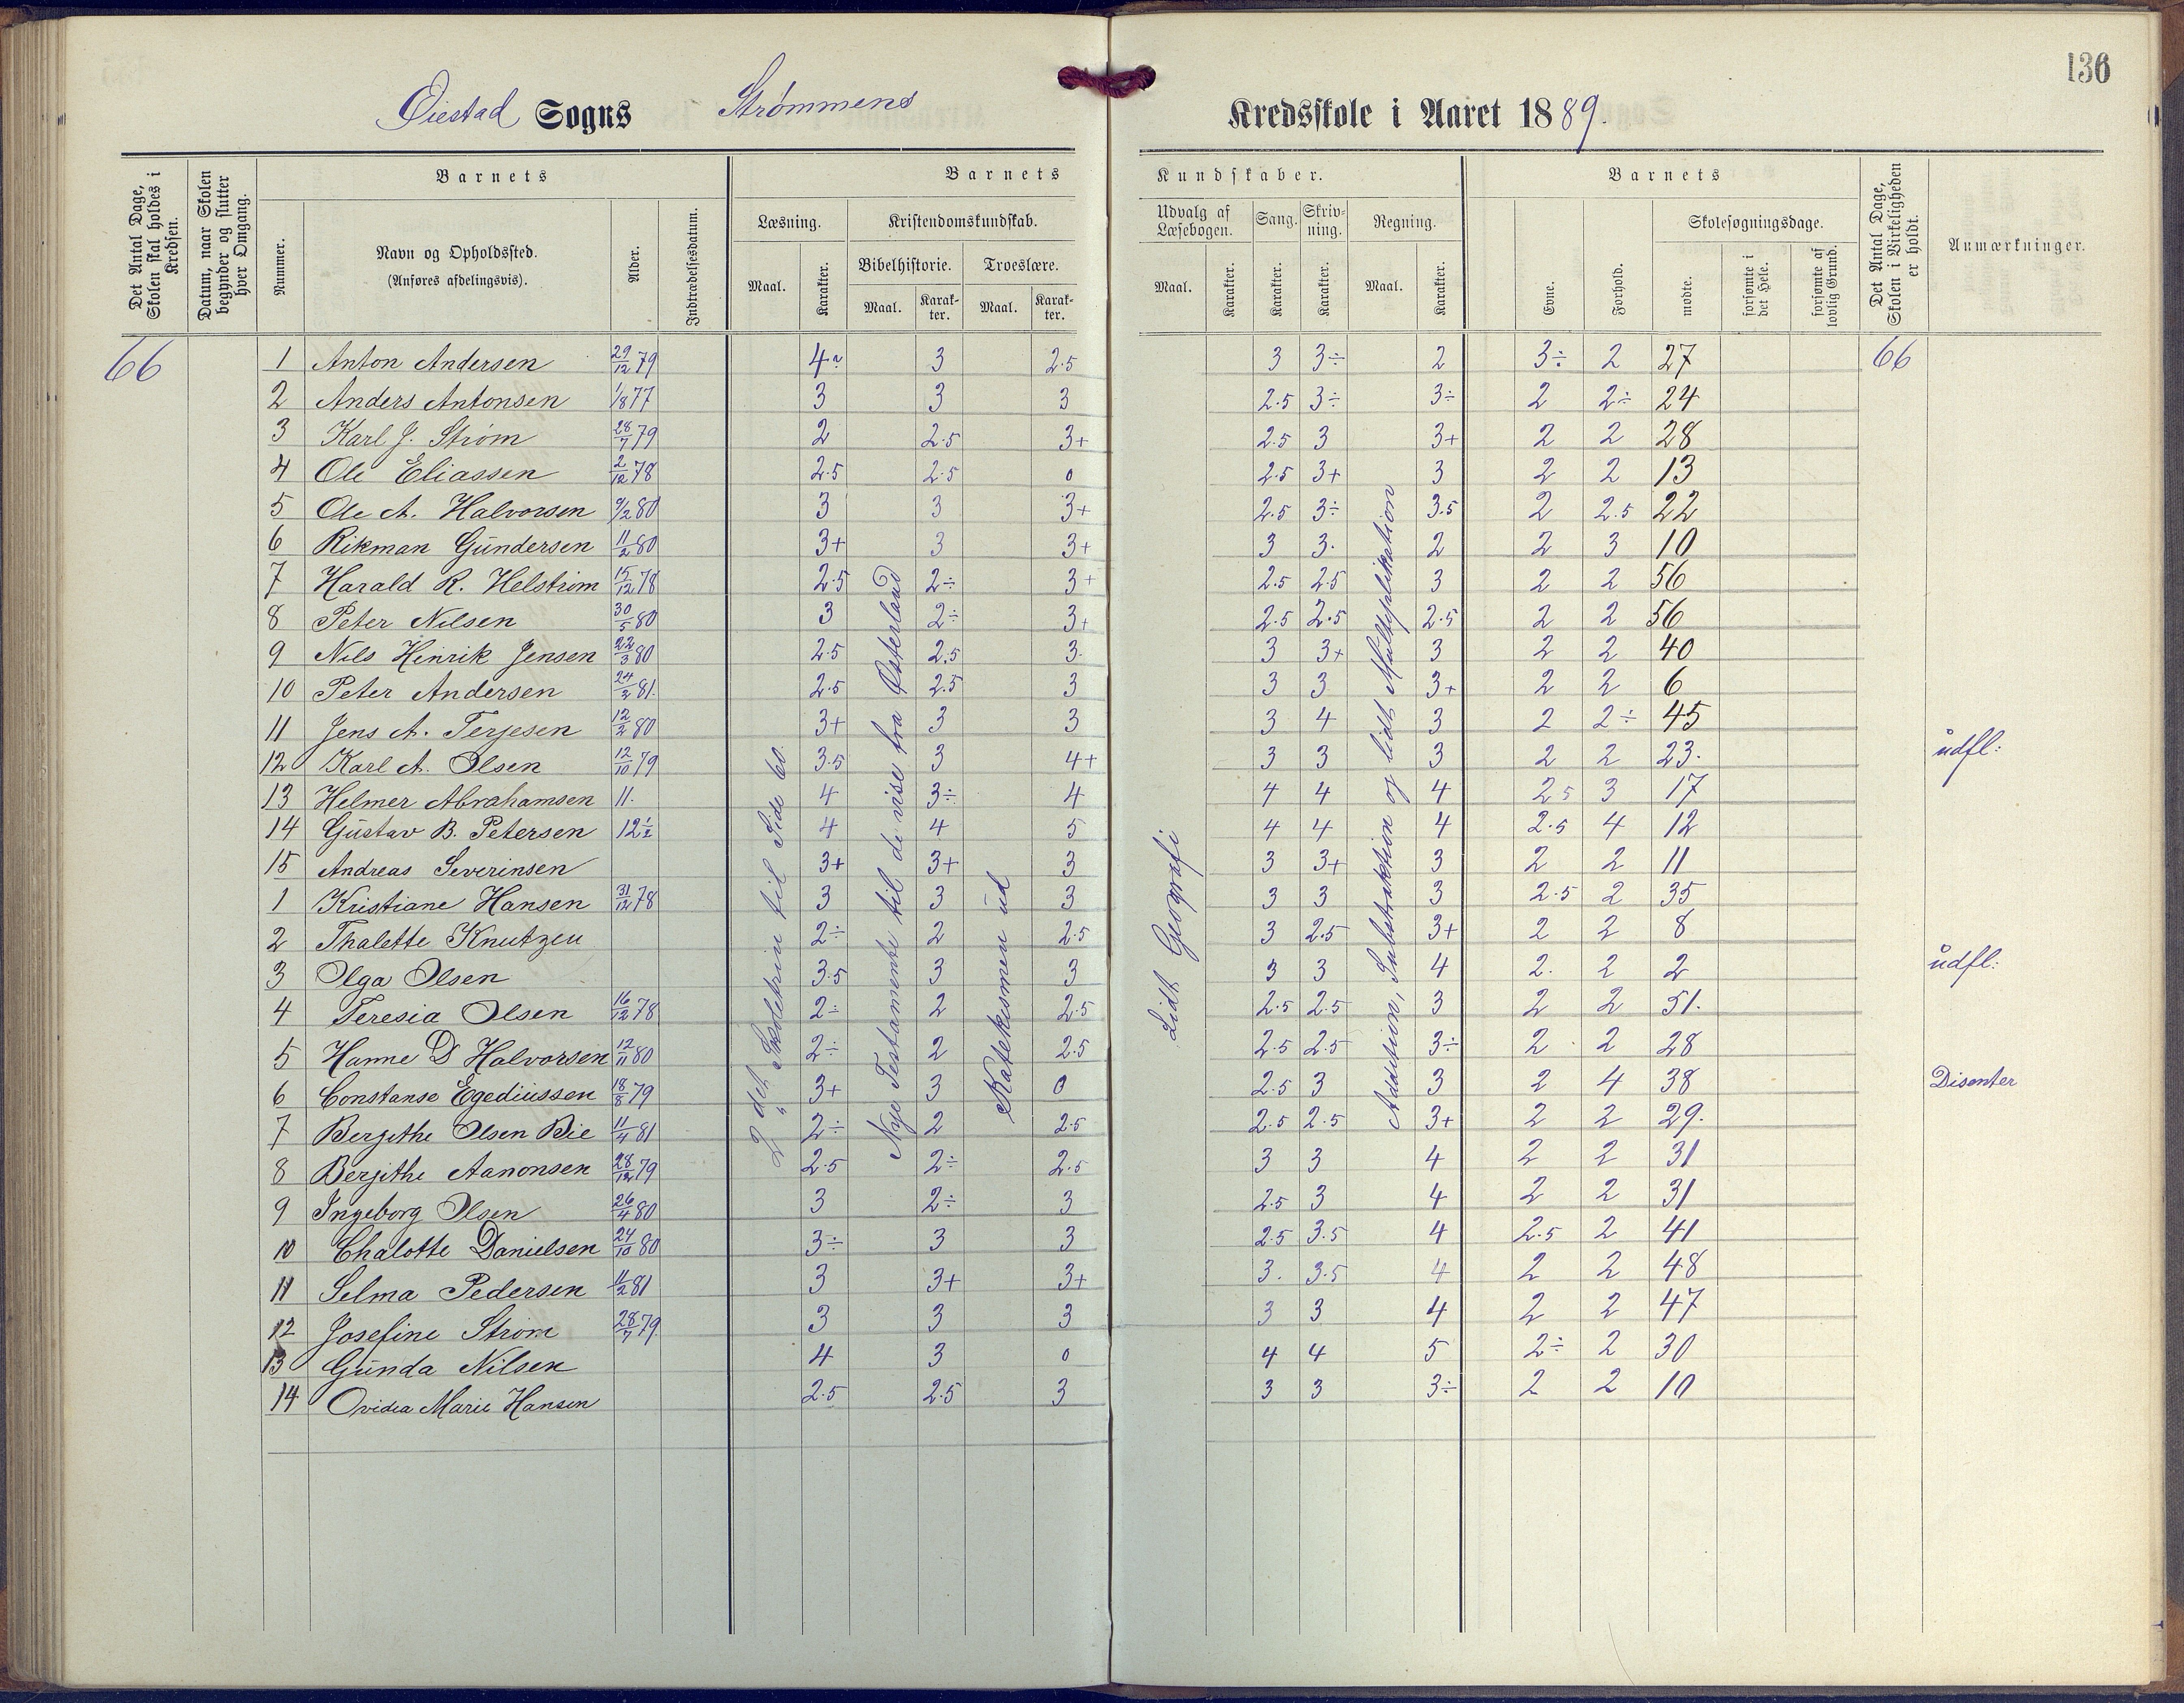 136
Øiestad Sogns Strømmens Kredsskole i Aaret 1889.
Det Antal Dage, Skolen skal holdes i Kredsen.
Datum, naar Skolen begynder og slutter hver Omgang.
Barnets
Nummer.
Navn og Opholdssted.
(Anføres afdelingsvis).
Alder.
Indtrædelsesdatum.
Barnets Kundskaber.
Læsning. Maal. Karakter.
Kristendomskundskab.
Bibelhistorie. Maal. Karakter.
Troeslære. Maal. Karakter.
Udvalg af Læsebogen. Maal. Karakter.
Sang. Karakter.
Skrivning. Karakter.
Regning. Maal. Karakter.
Barnets
Evne. Forhold.
Skolesøgningsdage.
mødte. forsømte i det Hele. forsømte af lovlig Grund.
Det Antal Dage, Skolen i Virkeligheden er holdt.
Anmærkninger.
66 1 Anton Andersen 29/12 79 4 3 2.5 3 3÷ 2 3÷ 2 27 66
2 Anders Antonsen 1/8 77 3 3 3 2.5 3÷ 3÷ 2 2÷ 24
3 Karl J. Strøm 28/7 79 2 2.5 3+ 2.5 3 3+ 2 2 28
4 Ole Eliassen 2/12 78 2.5 2.5 0 2.5 3+ 3 2 2 13
5 Ole A. Halvorsen 9/2 80 3 3 3+ 2.5 3÷ 3.5 2 2.5 22
6 Rikman Gundersen 11/2 80 3+ 3 3+ 3 3. 2 2 3 10
7 Harald R. Helstrøm 15/12 78 2.5 2÷ 3+ 2.5 2.5 3 2 2 56
8 Peter Nilsen 30/5 80 3 2÷ 3+ 2.5 2.5 2.5 2 2 56
9 Nils Henrik Jensen 22/3 80 2.5 2.5 3. 3 3+ 3 2 2 40
10 Peter Andersen 24/2 81. 2.5 2.5 3 3 3 3+ 2 2 6
11 Jens A. Terjesen 12/2 80 3+ 3 3 3 4 3 2 2÷ 45
12 Karl A. Olsen 12/10 79 3.5 3 4+ 3 3 3 2 2 23. udfl:
13 Helmer Abrahamsen 11. 4 3÷ 4 4 4 4 2.5 3 17
14 Gustav B. Petersen 12½ 4 4 5 4 4 4 2.5 4 12
15 Andreas Severinsen 3+ 3+ 3 3 3+ 3 2 2 11
1 Kristiane Hansen 31/12 78 3 3 3 3 3 3 2.5 2 35
2 Thalette Knutzen 2÷ 2 2.5 3 2.5 3+ 2 2 8
3 Olga Olsen 3.5 3 3 3 3 4 2. 2 2 udfl:
4 Teresia Olsen 16/12 78 2÷ 2 2.5 2.5 2.5 3 2 2 51.
5 Hanne D Halvorsen 12/11 80 2÷ 2 2.5 2.5 2.5 3÷ 2 2 28
6 Constanse Egediussen 18/8 79 3+ 3 0 2.5 3 3 2 4 38 Disenter
7 Bergithe Olsen Bie 11/4 81 2÷ 2 2.5 2.5 2.5 3+ 2 2 29.
8 Bergithe Aanonsen 28/12 79 2.5 2÷ 2.5 3 3 4 2 2 31
9 Ingeborg Olsen 26/4 80 3 2÷ 3 2.5 3 4 2 2 31
10 Chalotte Danielsen 24/10 80 3÷ 3 3 2.5 3.5 4 2.5 2 41
11 Selma Pedersen 11/2 81 3 3+ 3+ 3. 3.5 4 2 2 48
12 Josefine Strøm 28/7 79. 3 3 3 3 3 4 2 2 47
13 Gunda Nilsen 4 3 0 4 4 5 2÷ 2 30
14 Ovidia Marie Hansen 2.5 2.5 3 3 3 3÷ 2 2 10
2det Skoletrin til Side 60.
Nye Testamente til de vise fra Østerland
Katekismen ud
Lidt Geografi
Addition, Substraktion og lidt Multiplikation